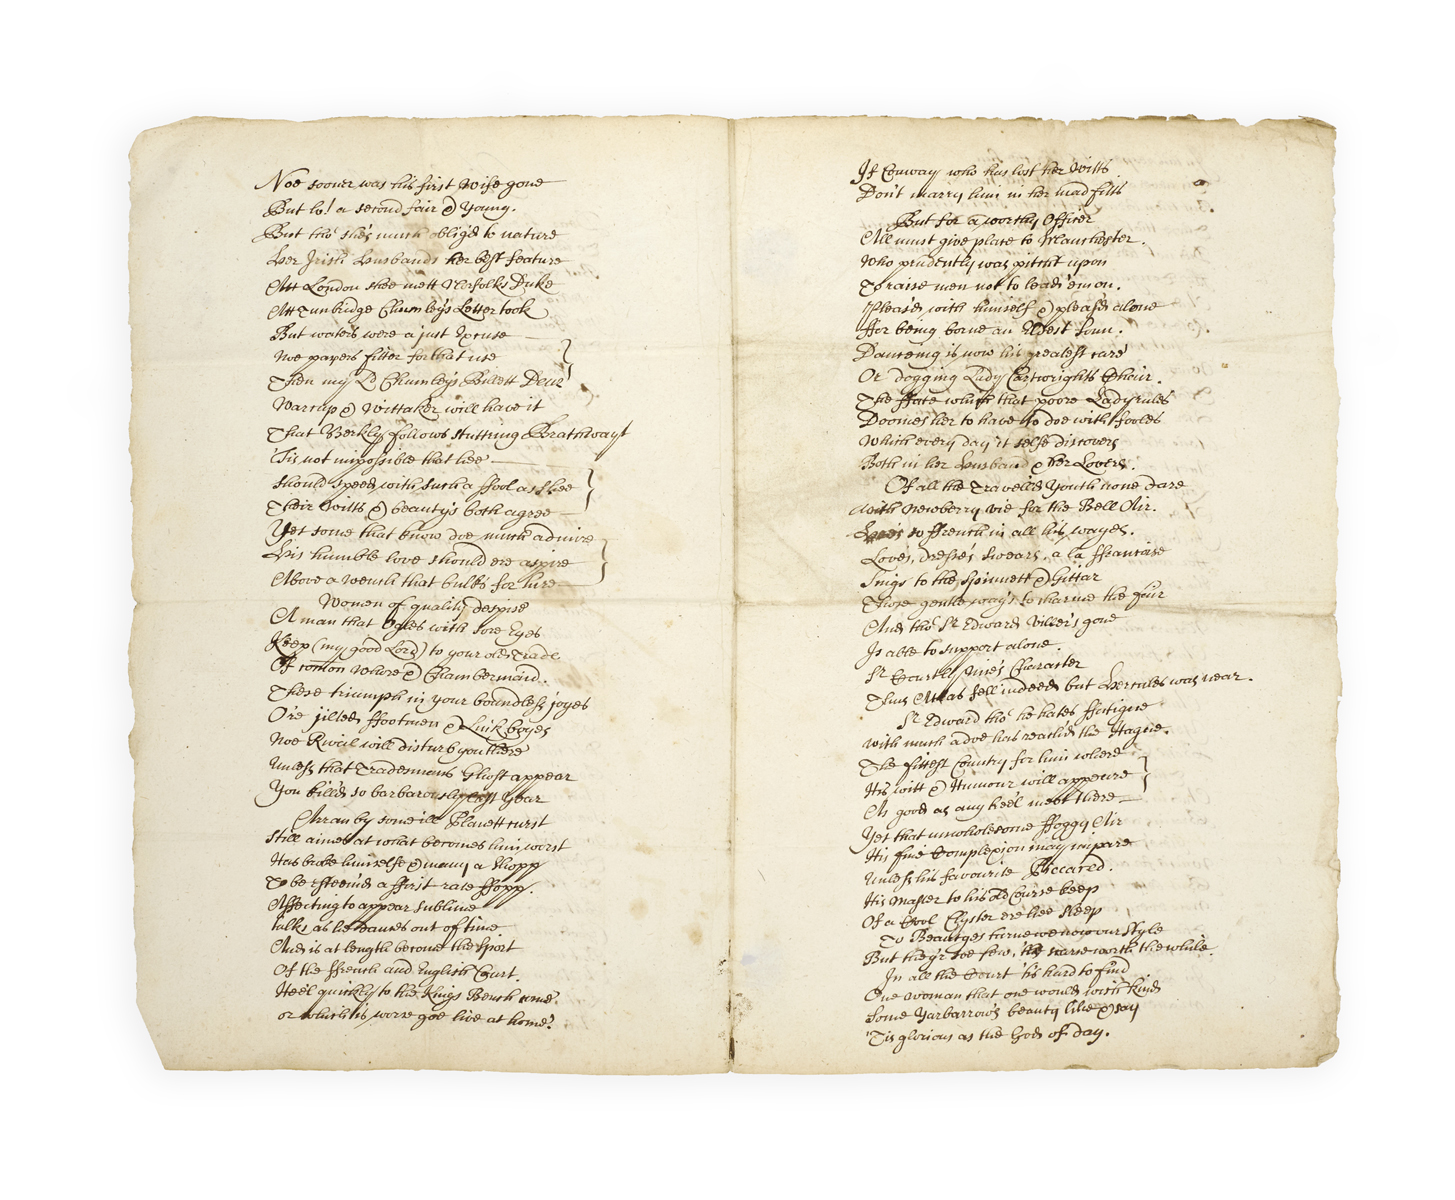 Noe sooner was his first Wife gone
But lo! a second fair & Young.
But tho' she's much oblig'd to nature
Her Irish Husbands her best feature
Att London shee mett Norfolks Duke
Att Tunbridge Chumley's Letter took
But waters were a just Excuse
Noe papers fitter for that use
Then my Ld Chumley's Billett Deux
Warcup & Wittaker will have it
That Berkly follows stuttring Brathwayt
'Tis not impossible that hee
should speed with such a ffool as shee
Their witts & beauty's both agree
Yet some that know doe much admire
His humble love should ere aspire
Above a Wench that bulks for hire
Women of quality despise
A man that Ogles with sore Eyes
Keep (my good Lord) to your old Trade
Of comon Whore & Chambermaid.
There triumph in your boundless joyes
O're jilted ffootmen & Link boyes
Noe Rival will disturb you there
Unless that Tradesmans Ghost appear
You kill'd so barbarously last Year
Arran by some ill Planett curst
Still aimes at what becomes him worst
Has broke himselfe & many a Shopp
To be esteem'd a ffirst rate ffopp.
Affecting to appear sublime
talks as he daunces out of time
And is at length become the sport
Of the ffrench and English Court.
Hee'l quickly to the Kings Bench come
or which is worse goe live at home.
If Conway who has lost her Witts
Don't marry him in her mad fitts
But for a worthy Officer
All must give place to Manchester.
Who prudently was pitcht upon
To raise men not to lead 'em on.
Pleas'd with himself & pleas'd alone
ffor being borne an Eldest Sonn.
Daunceing is now his greatest care
Or dogging Lady Cartwrights Chair.
The ffate which that poore Lady rules
Doomes her to have to doe with ffooles
Which every day it selfe discovers
Both in her Husband & her Lovers.
Of all the Travell'd Youth none dare
with Newberry vie for the Bell Air.
so ffrench in all his wayes.
Loves, dresses, swears, a la ffrancaise
Sings to the Spinnett & Gittar
Those gentle way's to charme the fair
And tho' Sr Edward Viller's gone
Is able to support alone.
Sr Courtly Nice's Character
Thus Atlas fell indeed but Hercules was near.
Sr Edward tho' he hates ffatigue
with much adoe has reach'd the Hague.
The fittest Country for him where
His witt & Humour will appeare
As good as any hee'l meet there
Yet that unwholesome ffoggy Air
His fine Complexion may impare
Unless his favourite Piccard.
His Master to his old Course keep
Of a Cool Clyster ere hee sleep
To Beautyes turne we now our Style
But they'r soe few, 'tis scarse worth the while.
In all the Court 'tis hard to find
One woman that one would wish kind
Some Yarbarrow's beauty like & say
'Tis glorious as the God of day.